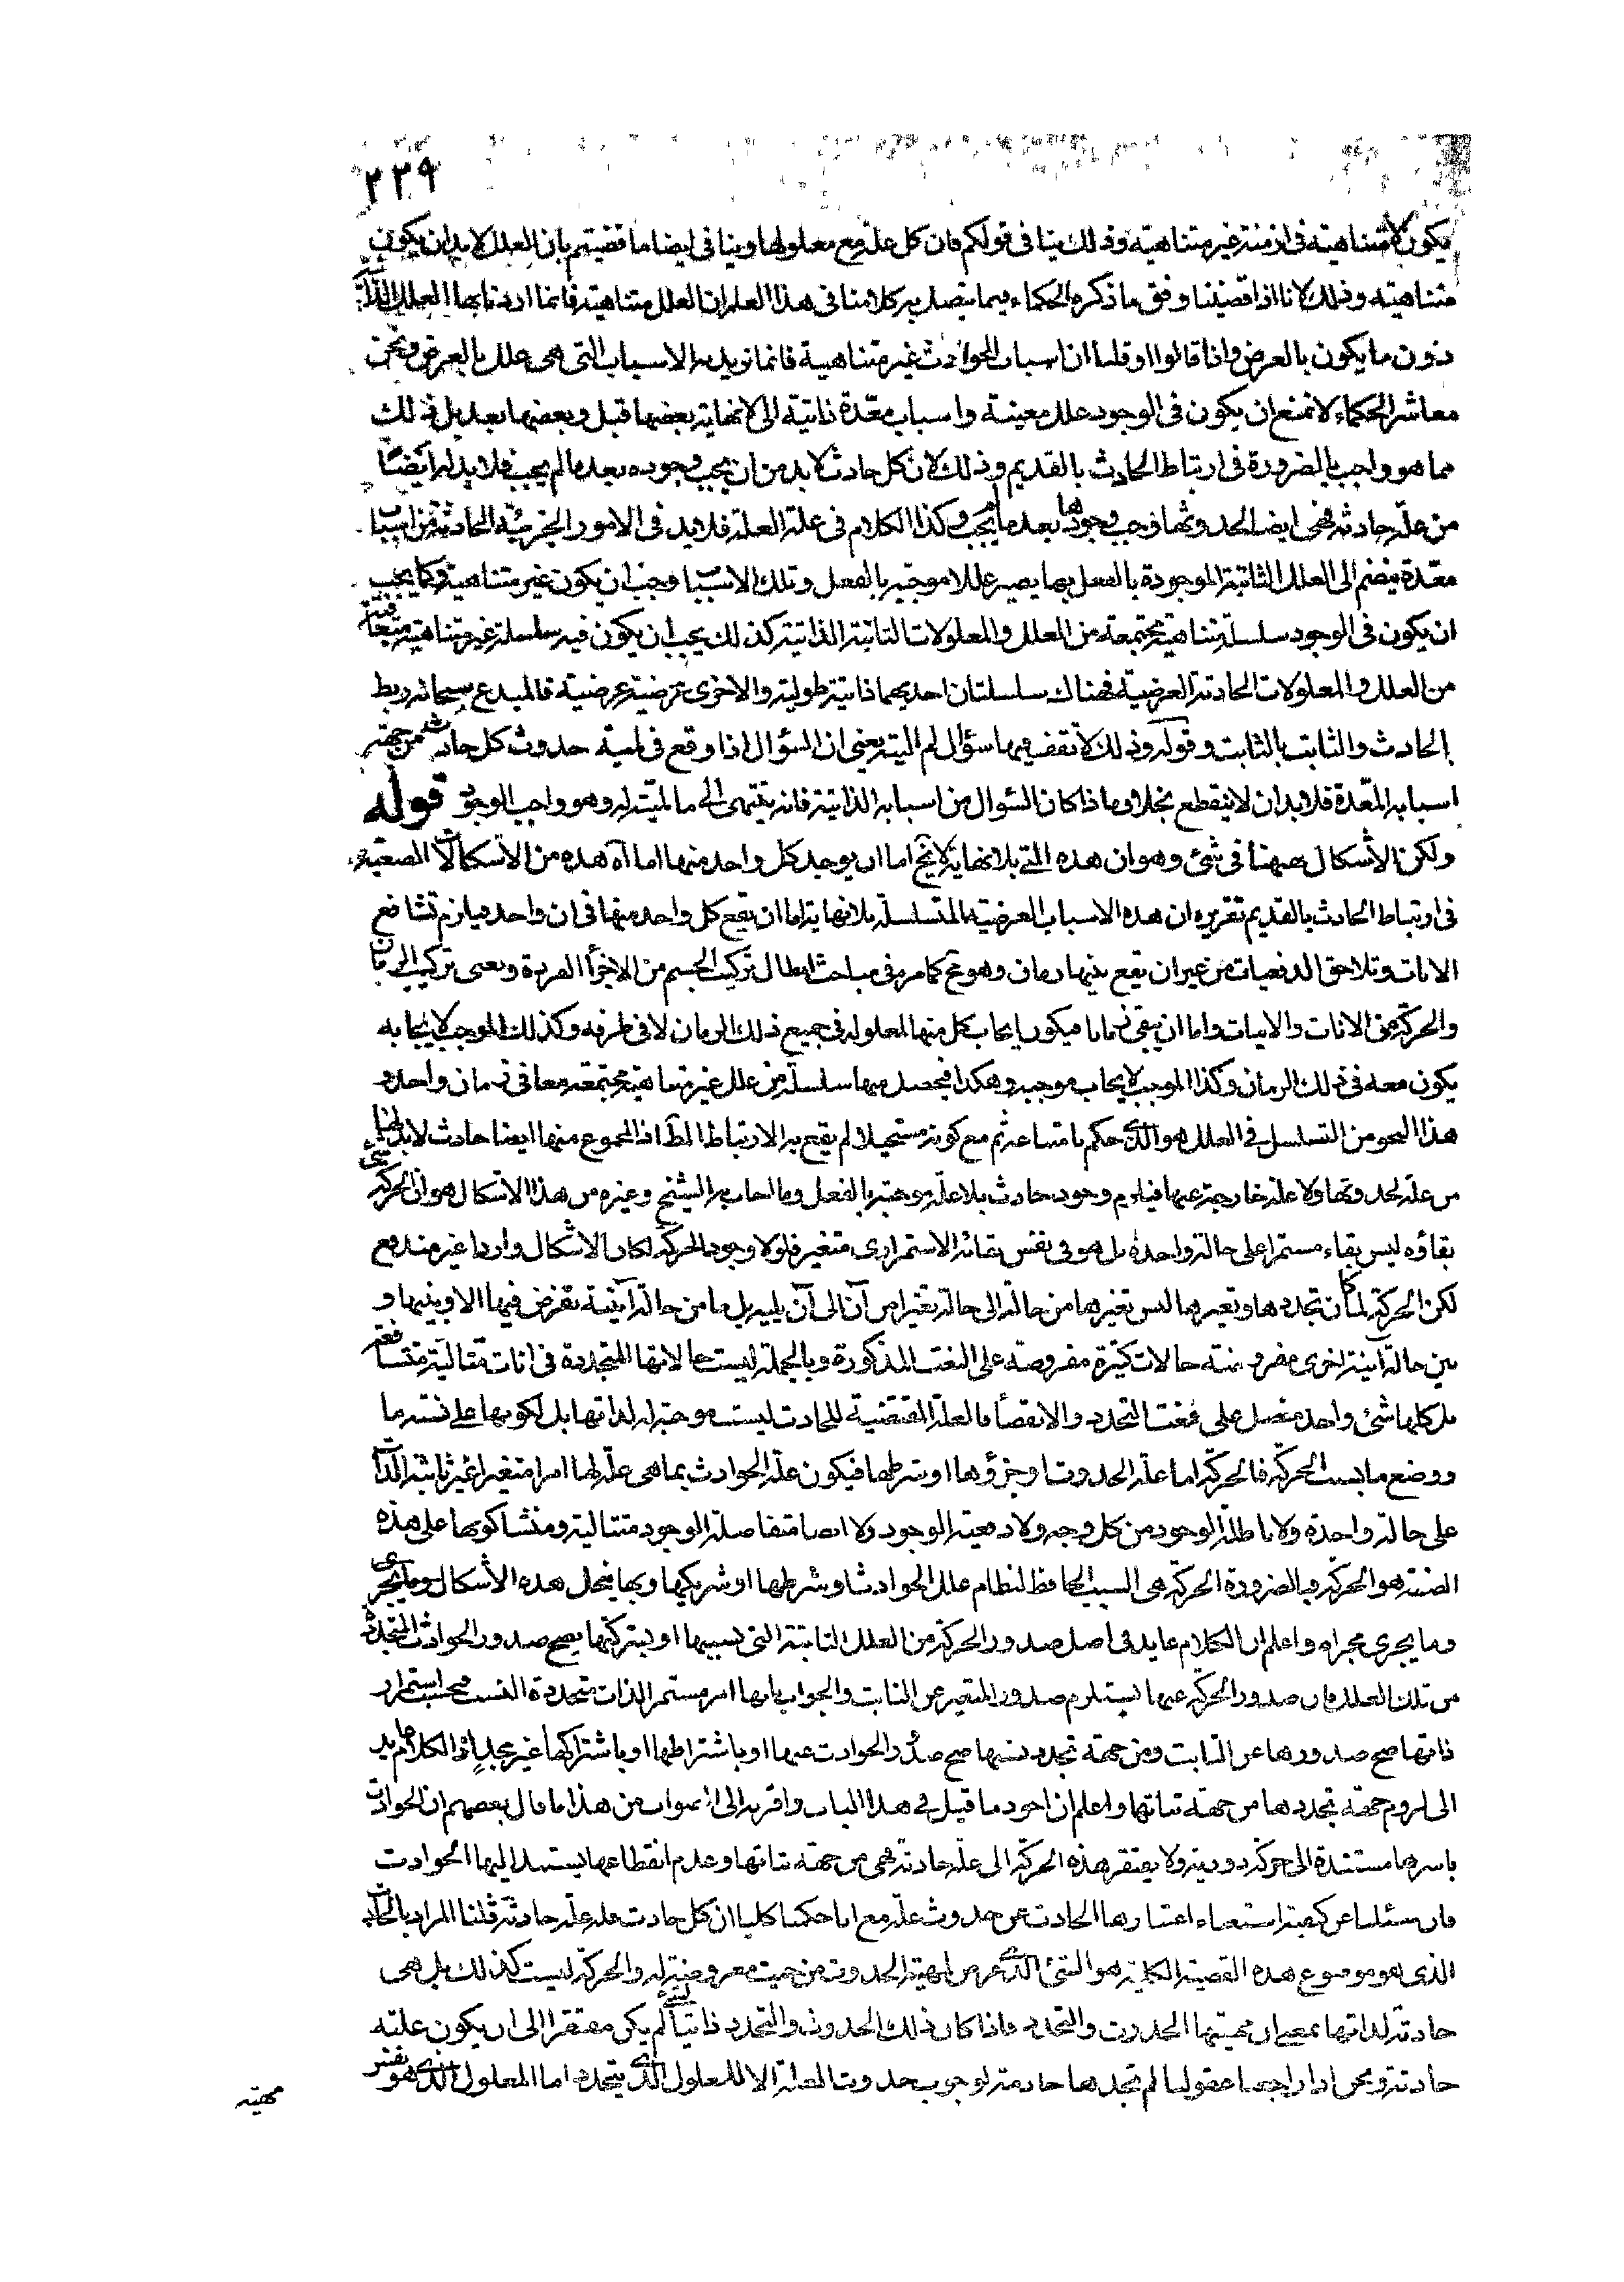 ٢٣٩
يكون لا متناهية فى ازمنة غير متناهية وذلك ينافى قولكم فان كل علة مع معلولها وينافى ايضا ما قضيتم بان العلل لا بد ان يكون
متناهية وذلك لانا اذا قضيئنا وفق ما ذكره الحكماء فيما يتصل به كلامنا فى هذا العلم ان العلل متناهية فانما اردنا بها العلل الذاتية
دون ما يكون بالعرض واذا قالوا او قلنا ان اسباب الحوادث غير متناهية فانما نريد بها الاسباب التى هى علل بالعرض ونحن
معاشر الحكماء لا نمنع ان يكون فى الوجود علل معينة واسباب معدّة ذاتية الى لا نهاية بعضها قبل وبعضها بعد بل ذلك
مما هو واجب بالضرورة فى ارتباط الحادث بالقديم وذلك لان كل حادث لا بد من ان يجب وجوده بعد ما لم يجب فلا بد له ايضا
من علة حادثة فهى ايضا لحدوثها وجب وجودها بعد ما لم يجب وكذا الكلام فى علة العلة فلا بد فى الامور الجزئية الحادثة من اسباب
معدّة ينضم الى العلل الثابتة الموجودة بالفعل بها يصير عللا موجبة بالفعل وتلك الاسباب وجب ان يكون غير متناهية وكما يجب
ان يكون فى الوجود سلسلة متناهية مجتمعة من العلل والمعلولات الثابتة الذاتية كذلك يجب ان يكون فيه سلسلة غير متناهية متعاقبة
من العلل والمعلولات الحادثة العرضية فهناك سلسلتان احديهما ذاتية طولية والاخرى عرضية عرضية فالمبدع سبحانه ربط
الحادث بالحادث والثابت بالثابت وقوله وذلك لا تقف فيها سؤال لم البتة يعنى ان السؤال اذا وقع فى لمية حدوث كل حادث من جهة
اسبابه المعدّة فلا بد ان لا ينقطع بخلاف ما اذا كان السؤال من اسبابه الذاتية فانه ينتهى الى ما لا لمية له وهو واجب الوجود قوله
ولكن الأشكال هيهنا فى شئ وهو ان هذه التى بلا نهاية لا يخ اما ان يوجد كل واحد منها اما آه هذه من الاشكالات الصعبة
فى ارتباط الحادث بالقديم تقريره ان هذه الاسباب العرضية المتسلسلة بلا نهاية اما ان يقع كل واحد منها فى ان واحد فيلزم تشافع
الانات وتلاحق الدفعيات من غير ان يقع بينها زمان وهو مح كما مر فى مباحث ابطال تركيب الجسم من الاجزأ الفردة ونفى تركيب الزمان
والحركة من الانات والانيات واما ان يبقى زمانا فيكون ايجاب كل منها لمعلوله فى جميع ذلك الزمان لا فى طرفه وكذلك الموجب لايجابه
يكون معه فى ذلك الزمان وكذا الموجب لايجاب موجبه وهكذا فيحصل منها سلسلة من علل غير متناهية مجتمعة معا فى زمان واحد و
هذا النحو من التسلسل فى العلل هو الذى حكم بامتناعه ثم مع كونه مستحيلا لم يقع به الارتباط المط اذ المجموع منها ايضا حادث لا بد لها
من علة لحدوثها ولا علة خارجة عنها فيلزم وجود حادث بلا علة موجبة بالفعل وما اجاب به الشيخ وغيره من هذا الاشكال هو ان الحركة شئ
بقاؤه ليس بقاء مستمرا على حالة واحدة بل هو فى نفس بقائه الاستمرارى متغير فلولا وجود الحركة لكان الاشكال واردا غير مندفع
لكن الحركة لما كان تجددها وتغيرها ليس تغيرها من حالة الى حالة تغيرا من آن الى آن يليه بل ما من حالة آنية تفرض فيها الا وبينها و
بين حالة آنية اخرى مفروضة حالات كثيرة مفروضة على النعت المذكورة وبالجملة ليست حالاتها المتجددة فى انات متتالية متشافعة
بل كلها شئ واحد متصل على نعت التجدد والانقضأ فالعلة المقتضية للحادث ليست موجبة له لذاتها بل لكونها على نسبة ما
ووضع ما بسبب الحركة فالحركة اما علة الحدوث او جزؤها او شرطها فيكون علة الحوادث بما هى علة لها امرا متغيرا غير ثابتة الذات
على حالة واحدة ولا باطلة الوجود من كل وجه ولا دفعية الوجود ولا ايضا متفاصلة الوجود متتالية ومنشا كونها على هذه
الصفة هو الحركة فبالضرورة الحركة هى السبب الحافظ لنظام علل الحوادث او شرطها او شريكها وبها ينحل هذه الأشكال وما يجرى
وما يجرى مجراه واعلم ان الكلام عايد فى اصل صدور الحركة من العلل الثابتة التى بسببها او بشركتها يصح صدور الحوادث المتجددة
من تلك العلل فان صدور الحركة عنها يستلزم صدور المتغير عن الثابت والجواب بانها امر مستمر الذات متجددة النسب فبحسب استمرار
ذاتها صح صدورها عن الثابت ومن جهة تجدد نسبها صح صدور الحوادث عنها او باشتراطها او باشتراكها غير مجدٍ اذ الكلام عايد
الى لزوم جهة تجددها من جهة ثباتها واعلم ان اجود ما قيل فى هذا الباب واقربه الى الصواب من هذا ما قال بعضهم ان الحوادث
باسرها مستندة الى حركة دورية ولا يفتقر هذه الحركة الى علة حادثة فهى من جهة ثباتها وعدم انقطاعها يستند اليها الحوادث
فان سئلنا عن كيفية استغناء اعتبارها الحادث عن حدوث علة مع انا حكمنا كليا ان كل حادث فله علة حادثة قلنا المراد بالحادث
الذى هو موضوع هذه القضية الكلية هو الشئ الذى عرض لمهيته الحدوث من حيث معروضيته له والحركة ليست كذلك بل هى
حادثة لذاتها بمعنى ان مهيتها الحدوث والتجدد فاذا كان ذلك الحدوث والتجدد ذاتيا لشئ لم يكن مفتقرا الى ان يكون علته
حادثة ونحن اذا راجعنا عقولنا لم نجدها حازمة لوجوب حدوث العلة الا للمعلول الذى يتجدد اما المعلول الذى هو نفس
مهيته